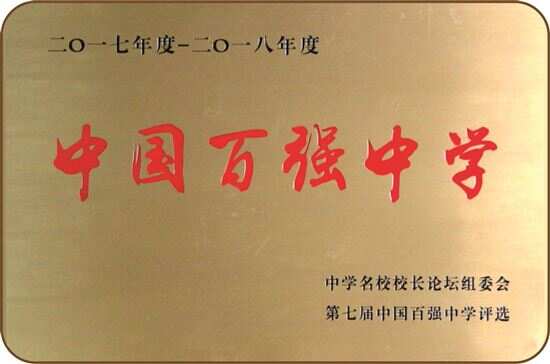 二〇一七年度-二〇一八年度
中国百强中学
中学名校校长论坛组委会
第七届中国百强中学评选